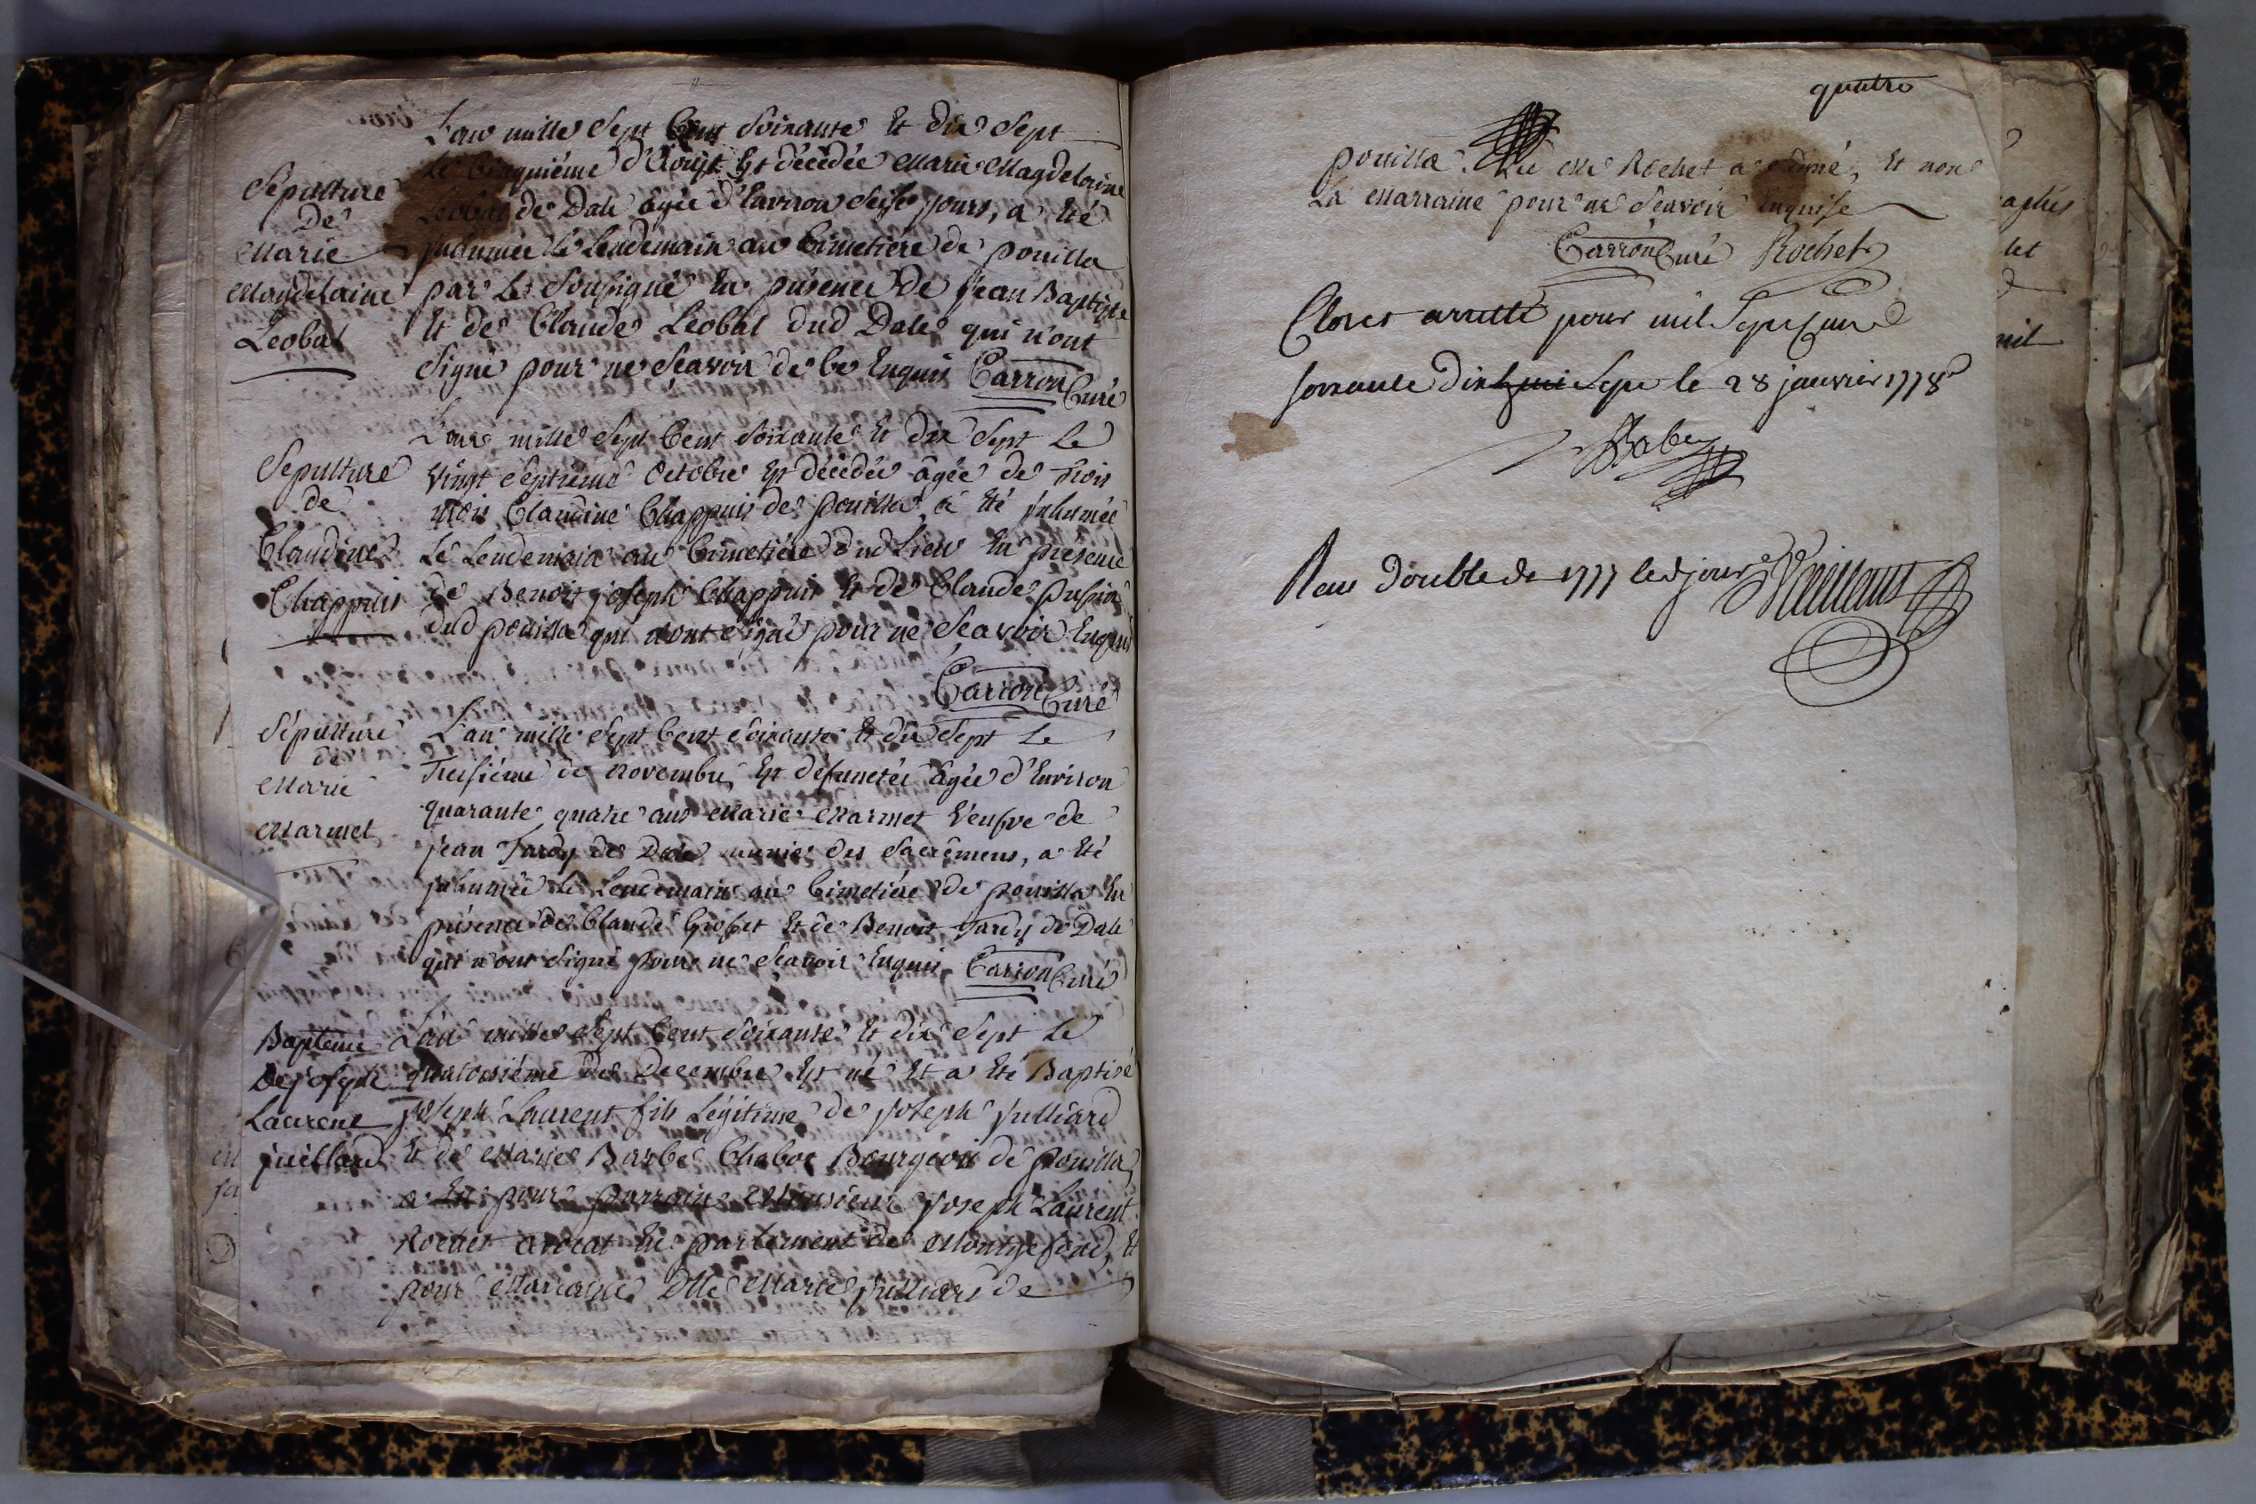 L'an mille Sept Cent Soixante Et dix Sept
Le Cinquiéme d'Aoust Est décédée Marie Magdelaine
Leobal de Dale âgée d'Environ Seize jours, a Eté
jnhumée le Lendemain au Cimetiére de pouilla
par le Soussigné En présence de jean Baptiste
Et de Claude Leobal dud Dale qui n'ont
Signé pour ne Sçavoir de ce Enquis Carron Curé
Sépulture
De
Marie
Magdelaine
Leobal
L'an mille Sept Cent Soixante Et dix Sept Le
Vingt Septiéme Octobre Est décédée âgée de trois
mois Claudine Chappuis de pouilla, a Eté jnhumée
Le Lendemain au Cimetiére dud Lieu En présence
de Benoit joseph Chappuis Et de Claude
dud pouilla qui n'ont Signé pour ne Sçavoir Enquis
Carron Curé
Sepulture
de
Claudine
Chappuis
L'an mille Sept Cent Soixante Et dix Sept Le
Treisiéme de Novembre, Est défunctée âgée d'Environ
quarante quatre ans Marie Marmet Veufve de
jean Tardy de Dale munie des Sacrêmens, a Eté
jnhumée le Lendemain au Cimetiére de pouilla En
présence de Claude Et de Benoit Tardy de Dale
qui n'ont Signé pour ne Sçavoir Enquis Carron Curé
Sépulture
de
Marie
Marmet
L'an mille Sept Cent Soixante Et dix Sept Le
quatorsiéme de Decembre Est né Et a Eté Baptisé
joseph Laurent fils Légitime de joseph julliard
Et de Marie Barbe Chaboz Bourgeois de pouilla,
a Eu pour parrain Monsieur joseph Laurent
Rochet avocat En parlement de Montgefond, Et
pour Marraine Dlle Marie julliard de
Baptême
De joseph
Laurent
juillard
quatre
pouilla. Led Mr Rochet a Signé, Et non
La Marraine pour ne Sçavoir Enquise
Carron Curé Rochet
Clos et arretté pour mil Sept Cent
soixante dix huit Sept le 28 janvier 1778
Reçu double de 1777 led jour